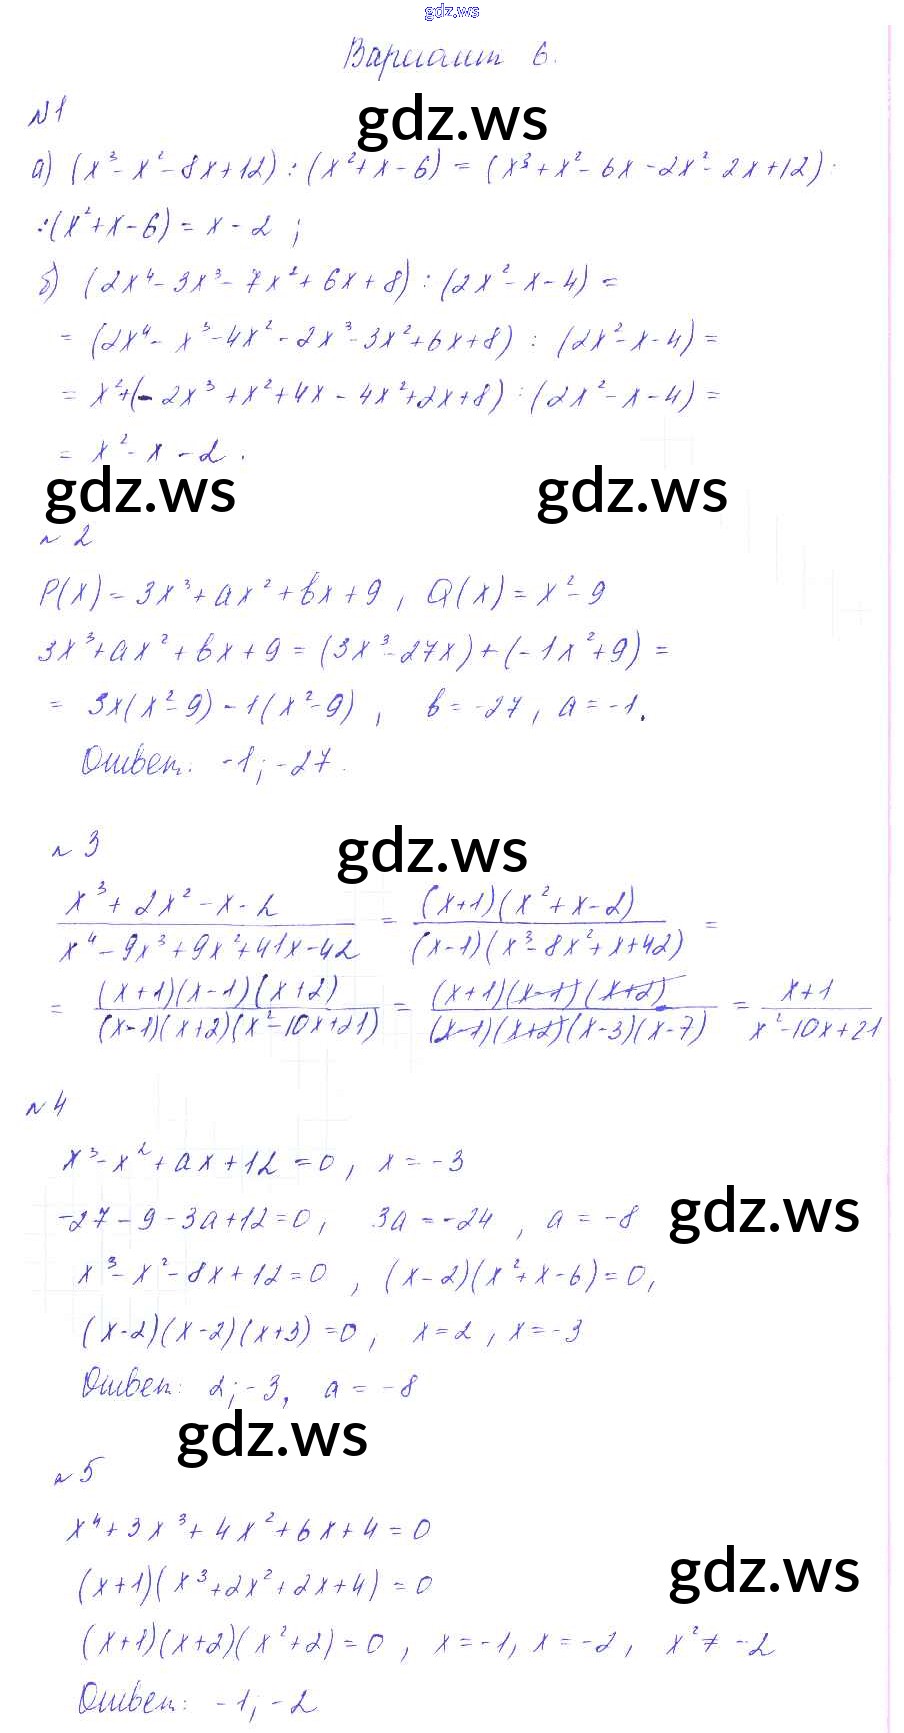 gdz.ws
Вариант 6.
№1
gdz.ws
а) (x³ - x² - 8x + 12) : (x² + x - 6) = (x³ + x² - 6x - 2x² - 2x + 12) :
: (x² + x - 6) = x - 2 ;
б) (2x⁴ - 3x³ - 7x² + 6x + 8) : (2x² - x - 4) =
= (2x⁴ - x³ - 4x² - 2x³ - 3x² + 6x + 8) : (2x² - x - 4) =
= x² + (-2x³ + x² + 4x - 4x² + 2x + 8) : (2x² - x - 4) =
= x² - x - 2 .
gdz.ws gdz.ws
№2
P(x) = 3x³ + ax² + bx + 9 , Q(x) = x² - 9
3x³ + ax² + bx + 9 = (3x³ - 27x) + (-1x² + 9) =
= 3x(x² - 9) - 1(x² - 9) , b = -27 , a = -1.
Ответ: -1; -27.
gdz.ws
№3
(x³ + 2x² - x - 2)/(x⁴ - 9x³ + 9x² + 41x - 42) = ((x+1)(x² + x - 2))/((x-1)(x³ - 8x² + x + 42)) =
= ((x+1)(x-1)(x+2))/((x-1)(x+2)(x² - 10x + 21)) = ((x+1)(x-1)(x+2))/((x-1)(x+2)(x-3)(x-7)) = (x+1)/(x² - 10x + 21)
№4
x³ - x² + ax + 12 = 0 , x = -3
gdz.ws
-27 - 9 - 3a + 12 = 0 , 3a = -24 , a = -8
x³ - x² - 8x + 12 = 0 , (x-2)(x² + x - 6) = 0,
(x-2)(x-2)(x+3) = 0 , x = 2 , x = -3
Ответ: 2; -3, a = -8
gdz.ws
№5
x⁴ + 3x³ + 4x² + 6x + 4 = 0
gdz.ws
(x+1)(x³ + 2x² + 2x + 4) = 0
(x+1)(x+2)(x² + 2) = 0 , x = -1, x = -2 , x² ≠ -2
Ответ: -1; -2